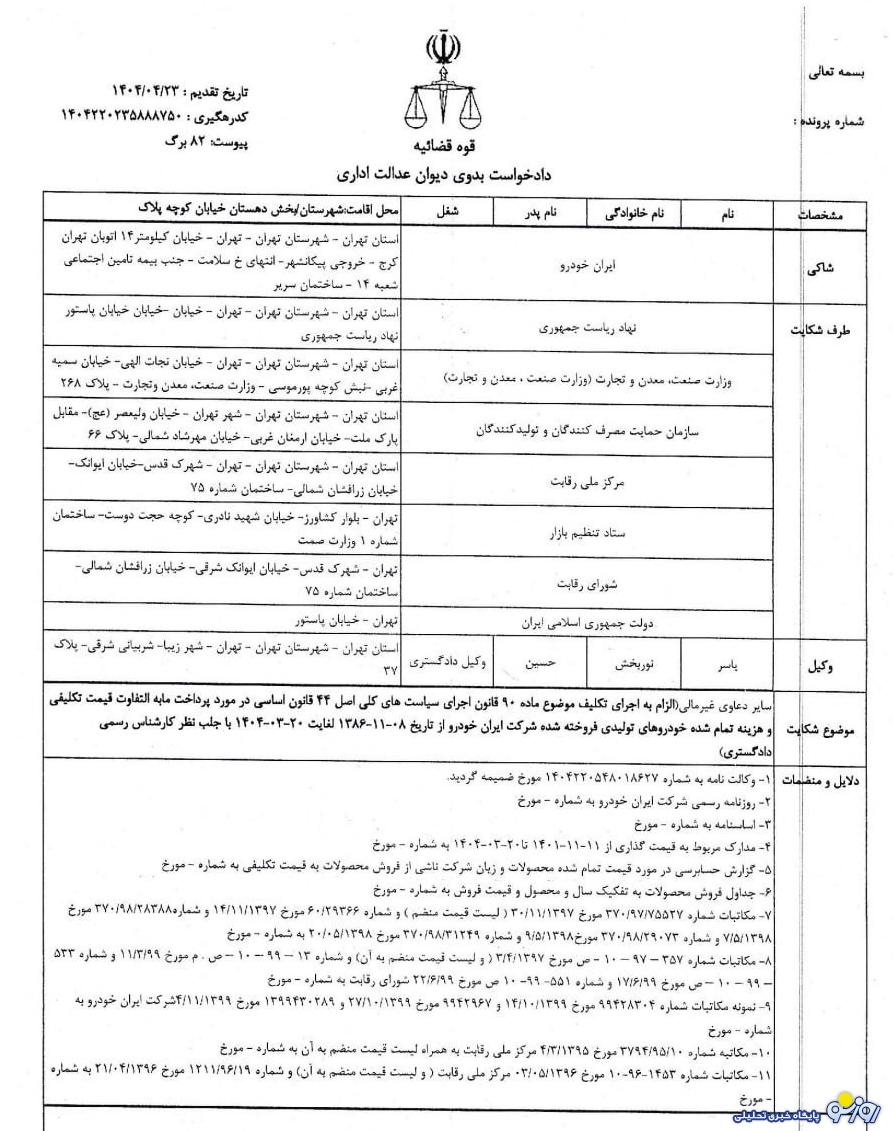 بسمه تعالی
شماره پرونده :
تاریخ تقدیم : ۱۴۰۴/۰۴/۲۳
کدرهگیری : ۱۴۰۴۲۲۰۲۳۵۸۸۸۷۵۰
پیوست: ۸۲ برگ
قوه قضائیه
دادخواست بدوی دیوان عدالت اداری
مشخصات نام نام خانوادگی نام پدر شغل محل اقامت:شهرستان/بخش دهستان خیابان کوچه پلاک
شاکی
ایران خودرو
استان تهران - شهرستان تهران - تهران - خیابان کیلومتر۱۴ اتوبان تهران
کرج - خروجی پیکانشهر- انتهای خ سلامت - جنب بیمه تامین اجتماعی
شعبه ۱۴ - ساختمان سریر
طرف شکایت
نهاد ریاست جمهوری
استان تهران - شهرستان تهران - تهران - خیابان -خیابان خیابان پاستور
نهاد ریاست جمهوری
وزارت صنعت، معدن و تجارت (وزارت صنعت ، معدن و تجارت)
استان تهران - شهرستان تهران - تهران - خیابان نجات الهی- خیابان سمیه
غربی -نبش کوچه پورموسی - وزارت صنعت، معدن وتجارت - پلاک ۲۶۸
سازمان حمایت مصرف کنندگان و تولیدکنندگان
استان تهران - شهرستان تهران - شهر تهران - خیابان ولیعصر (عج)- مقابل
پارک ملت- خیابان ارمغان غربی- خیابان مهرشاد شمالی- پلاک ۶۶
مرکز ملی رقابت
استان تهران - شهرستان تهران - تهران - شهرک قدس-خیابان ایوانک-
خیابان زرافشان شمالی- ساختمان شماره ۷۵
ستاد تنظیم بازار
تهران - بلوار کشاورز- خیابان شهید نادری- کوچه حجت دوست- ساختمان
شماره ۱ وزارت صمت
شورای رقابت
تهران - شهرک قدس- خیابان ایوانک شرقی- خیابان زرافشان شمالی-
ساختمان شماره ۷۵
دولت جمهوری اسلامی ایران
تهران - خیابان پاستور
وکیل
یاسر نوربخش حسین وکیل دادگستری
استان تهران - شهرستان تهران - تهران - شهر زیبا- شربیانی شرقی- پلاک
۳۷
موضوع شکایت
سایر دعاوی غیرمالی(الزام به اجرای تکلیف موضوع ماده ۹۰ قانون اجرای سیاست های کلی اصل ۴۴ قانون اساسی در مورد پرداخت مابه التفاوت قیمت تکلیفی
و هزینه تمام شده خودروهای تولیدی فروخته شده شرکت ایران خودرو از تاریخ ۰۸-۱۱-۱۳۸۶ لغایت ۲۰-۰۳-۱۴۰۴ با جلب نظر کارشناس رسمی
دادگستری)
دلایل و منضمات
۱- وکالت نامه به شماره ۱۴۰۴۲۲۰۵۴۸۰۱۸۶۲۷ مورخ ضمیمه گردید.
۲- روزنامه رسمی شرکت ایران خودرو به شماره - مورخ
۳- اساسنامه به شماره - مورخ
۴- مدارک مربوط به قیمت گذاری از ۱۱-۱۱-۱۴۰۱ تا۲۰-۰۳-۱۴۰۴ به شماره - مورخ
۵- گزارش حسابرسی در مورد قیمت تمام شده محصولات و زیان شرکت ناشی از فروش محصولات به قیمت تکلیفی به شماره - مورخ
۶- جداول فروش محصولات به تفکیک سال و محصول و قیمت فروش به شماره - مورخ
۷- مکاتبات شماره ۳۷۰/۹۷/۷۵۵۲۷ مورخ ۳۰/۱۱/۱۳۹۷ ( لیست قیمت منضم ) و شماره ۶۰/۲۹۳۶۶ مورخ ۱۴/۱۱/۱۳۹۷ و شماره۳۷۰/۹۸/۲۸۳۸۸ مورخ
۷/۵/۱۳۹۸ و شماره ۳۷۰/۹۸/۲۹۰۷۳ مورخ۹/۵/۱۳۹۸ و شماره ۳۷۰/۹۸/۳۱۲۴۹ مورخ ۲۰/۰۵/۱۳۹۸ به شماره - مورخ
۸- مکاتبات شماره ۳۵۷ - ۹۷ - ۱۰ - ص مورخ ۳/۴/۱۳۹۷ ( و لیست قیمت منضم به آن) و شماره ۱۳ - ۹۹ - ۱۰ - ص . م مورخ ۱۱/۳/۹۹ و شماره ۵۳۳
- ۹۹ - ۱۰ - ص مورخ ۱۷/۶/۹۹ و شماره ۵۵۱- ۹۹- ۱۰ ص مورخ ۲۲/۶/۹۹ شورای رقابت به شماره - مورخ
۹- نمونه مکاتبات شماره ۹۹۴۲۸۳۰۴ مورخ ۱۴/۱۰/۱۳۹۹ و ۹۹۴۲۹۶۷ مورخ ۲۷/۱۰/۱۳۹۹ و ۱۳۹۹۴۳۰۲۸۹ مورخ ۴/۱۱/۱۳۹۹شرکت ایران خودرو به
شماره - مورخ
۱۰- مکاتبه شماره ۳۷۹۴/۹۵/۱۰ مورخ ۴/۳/۱۳۹۵ مرکز ملی رقابت به همراه لیست قیمت منضم به آن به شماره - مورخ
۱۱- مکاتبات شماره ۱۴۵۳-۹۶-۱۰ مورخ ۰۳/۰۵/۱۳۹۶ مرکز ملی رقابت ( و لیست قیمت منضم به آن) و شماره ۱۲۱۱/۹۶/۱۹ مورخ ۲۱/۰۴/۱۳۹۶ به شماره
- مورخ
روزنو
پایگاه خبری تحلیلی